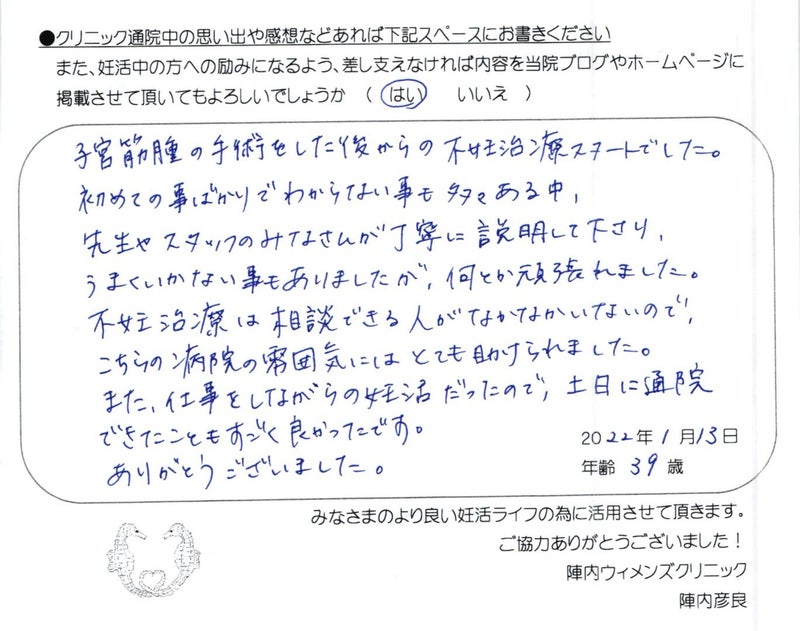 ●クリニック通院中の思い出や感想などあれば下記スペースにお書きください
また、妊活中の方への励みになるよう、差し支えなければ内容を当院ブログやホームページに
掲載させて頂いてもよろしいでしょうか （ はい　いいえ ）
子宮筋腫の手術をした後からの不妊治療スタートでした。
初めての事ばかりでわからない事も多々ある中,
先生やスタッフのみなさんが丁寧に説明して下さり,
うまくいかない事もありましたが, 何とか頑張れました。
不妊治療は相談できる人がなかなかいないので,
こちらの病院の雰囲気にはとても助けられました。
また, 仕事をしながらの妊活だったので, 土日に通院
できたこともすごく良かったです。
ありがとうございました。
2022年1月13日
年齢 39歳
みなさまのより良い妊活ライフの為に活用させて頂きます。
ご協力ありがとうございました！
陣内ウィメンズクリニック
陣内彦良